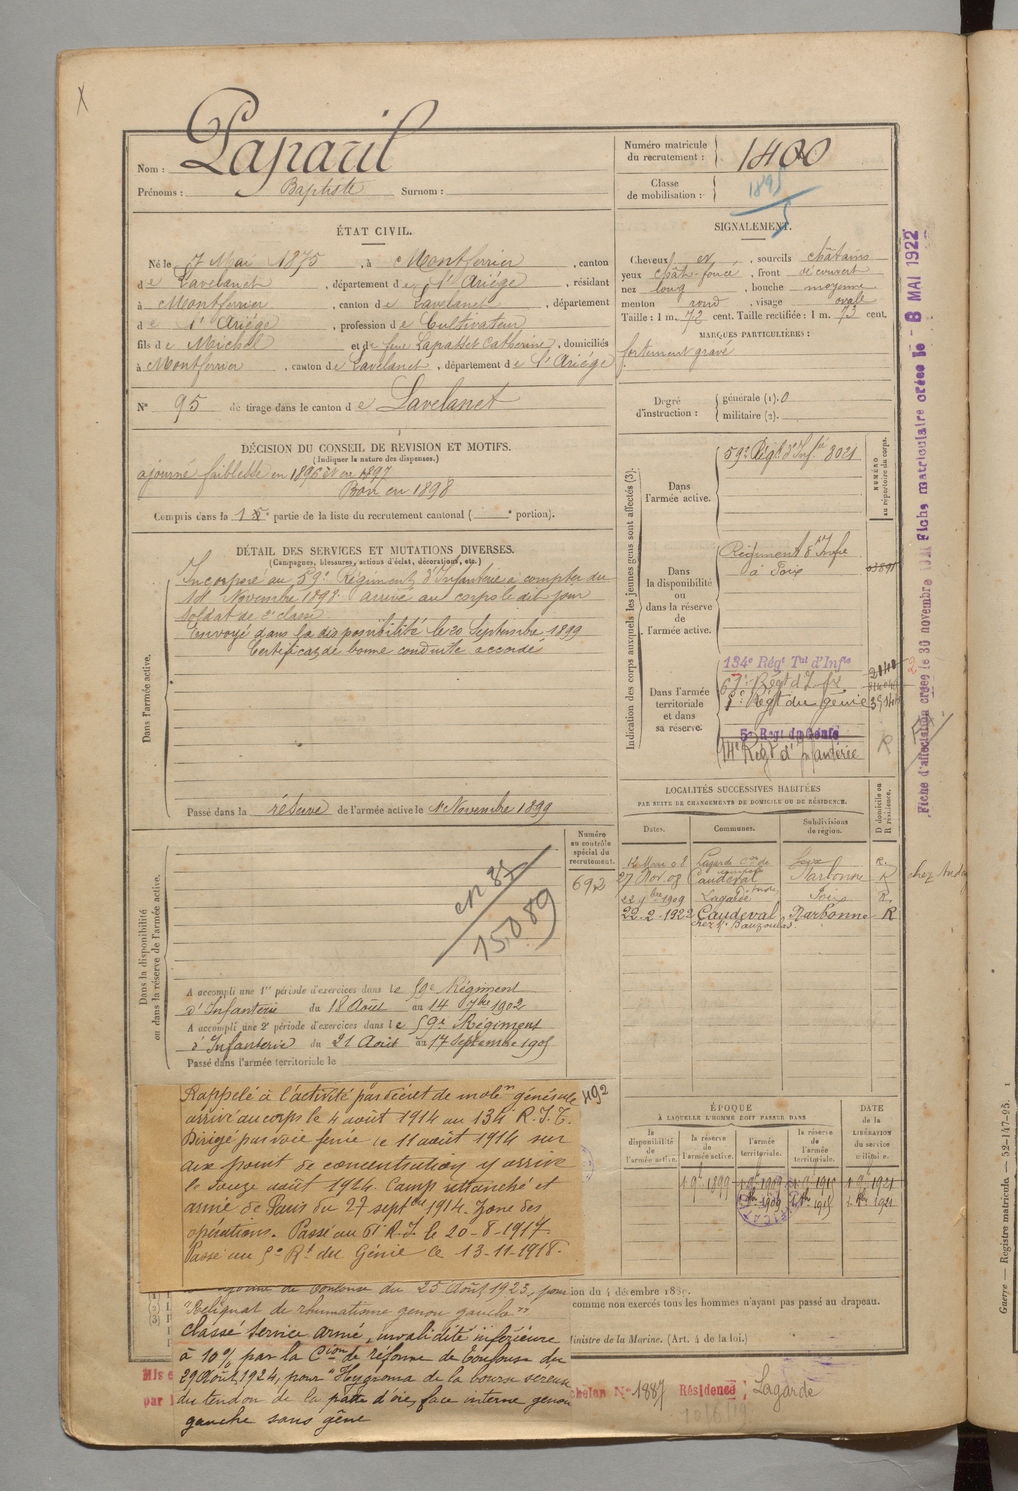 X
Nom : Paparil
Prénoms : Baptiste Surnom :
Numéro matricule
du recrutement : 1400
Classe
de mobilisation : 1895
ÉTAT CIVIL.
Né le 7 Mai 1875, à Montferrier, canton
de Lavelanet, département de l'Ariège, résidant
à Montferrier, canton de Lavelanet, département
de l'Ariège, profession de Cultivateur
fils de Michel et de feue Lapasset Catherine, domiciliés
à Montferrier, canton de Lavelanet, département de l'Ariège
N° 95 de tirage dans le canton de Lavelanet
SIGNALEMENT.
Cheveux et, sourcils châtains
yeux chât-foncé, front découvert
nez long, bouche moyenne
menton rond, visage ovale
Taille : 1 m. 72 cent. Taille rectifiée : 1 m. 73 cent.
MARQUES PARTICULIÈRES :
fortement gravé
Degré
d'instruction :
générale (1). 0
militaire (2).
DÉCISION DU CONSEIL DE RÉVISION ET MOTIFS.
(Indiquer la nature des dispenses.)
ajourné faiblesse en 1896 et en 1897
Bon en 1898
Compris dans la 1e partie de la liste du recrutement cantonal ( e portion).
DÉTAIL DES SERVICES ET MUTATIONS DIVERSES.
(Campagnes, blessures, actions d'éclat, décorations, etc.)
Dans l'armée active.
Incorporé au 59e Régiment d'Infanterie à compter du
arrivé au corps le dit jour
soldat de 2e classe
Envoyé dans la disponibilité le 20 Septembre 1899
Certificat de bonne conduite accordé
Passé dans la réserve de l'armée active le 1er Novembre 1899
Indication des corps auxquels les jeunes gens sont affectés (3).
NUMÉRO
au répertoire du corps.
Dans
l'armée active.
59e Régt d'Infie
Dans
la disponibilité
ou
dans la réserve
de
l'armée active.
Régiment d'Infie
à Foix
Dans l'armée
territoriale
et dans
sa réserve.
134e Régt Tal d'Infie
5e Régt du Génie
14e Régt d'Infanterie
R
Fiche d'affectation créée le 30 novembre Fiche matriculaire créée le 8 MAI 1922
LOCALITÉS SUCCESSIVES HABITÉES
PAR SUITE DE CHANGEMENTS DE DOMICILE OU DE RÉSIDENCE.
Dates. Communes. Subdivisions
de région. D domicile ou
R résidence.
27 Nov. 08 Caudeval Narbonne R
1909 Lagarde Foix R.
22-2-1922 Caudeval Narbonne R
Dans la disponibilité
ou dans la réserve de l'armée active.
Numéro
au contrôle
spécial du
recrutement.
692
15089
A accompli une 1re période d'exercices dans le 59e Régiment
d'Infanterie du 18 Août au 14 7bre 1902
A accompli une 2e période d'exercices dans le 59e Régiment
d'Infanterie du 21 Août au 17 Septembre 1905
Passé dans l'armée territoriale le
Rappelé à l'activité par décret de moblon générale
arrivé au corps le 4 août 1914 au 134e R.I.T.
Dirigé par voie ferrée le 11 août 1914 sur
point de concentration y arrive
le douze août 1914. Camp retranché et
armé de Paris du 27 septbre 1914. Zone des
opérations. Passé au R.I. le 20-8-1917
Passé au 5e Rt du Génie le 13-11-1918.
492
ÉPOQUE
À LAQUELLE L'HOMME DOIT PASSER DANS
la
disponibilité
de
l'armée active.
la
réserve
de
l'armée active.
l'armée
territoriale.
la
réserve
de
l'armée
territoriale.
DATE
de la
LIBÉRATION
du service
militaire.
de Toulouse du 25 Août 1923, pour
"Reliquat de rhumatisme genou gauche"
Classé Service armé, invalidité inférieure
à 10% par la Cion de réforme de Toulouse du
29 Août 1924, pour "Hygroma de la bourse séreuse
du tendon de la patte d'oie, face interne genou
gauche sans gêne
ion du 4 décembre
comme non exercés tous les hommes n'ayant pas passé au drapeau.
Ministre de la Marine. (Art. 4 de la loi.)
Mis e
par
chelon N° 1887 Résidence : Lagarde
Guerre — Registre matricule. — 52-147-95.